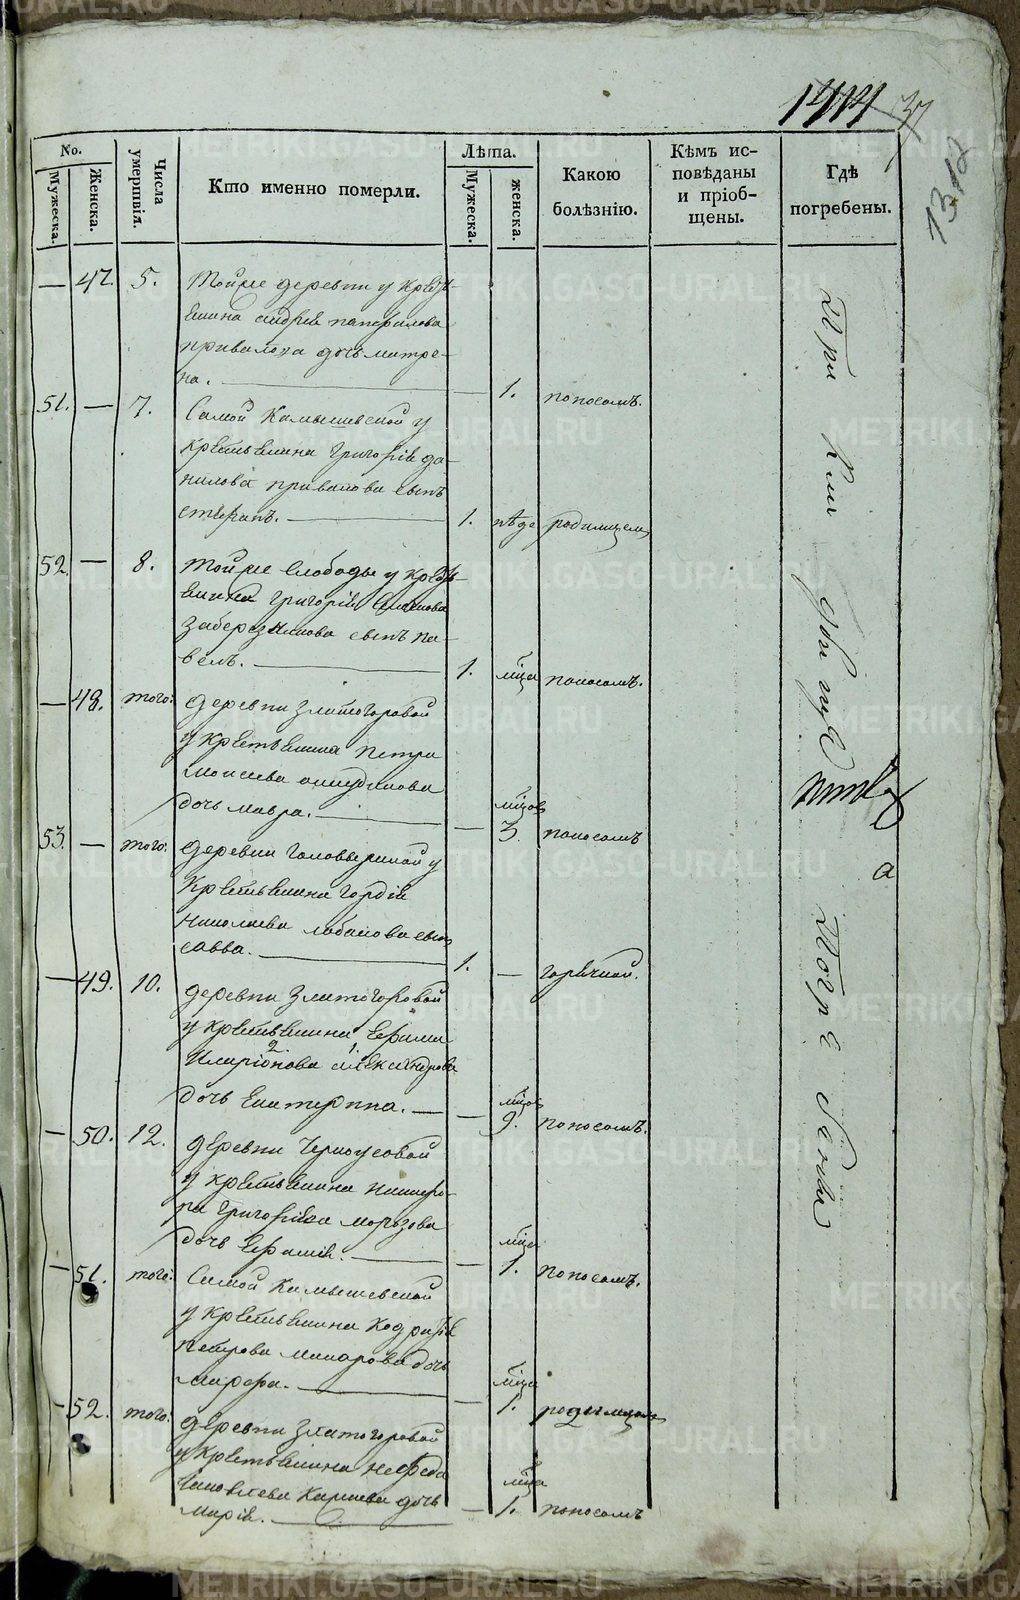 1414 37
1312
No.
Мужеска.
Женска.
Числа умершвія.
Кто именно померли.
Лѣта.
Мужеска.
женска.
Какою болѣзнію.
Кѣмъ ис-
повѣданы
и пріоб-
щены.
Гдѣ
погребены.
— 47. 5. Тойже деревни у Крестья-
нина Андрея
Привалова дочь Матре-
на. — 1. поносомъ.
51. — 7. Самой Камышевской у
Крестьянина Григорія Да-
нилова Привалова сынъ
Стефанъ. 1. недѣ родимцемъ
52. — 8. Тойже Слободы у Кресть-
янина Григорія
сынъ Па-
велъ. 1. мѣца поносомъ.
— 48. того: деревни Златогоровой
у Крестьянина Петра
Моисеева
дочь Мавра. — мѣцов 3. поносомъ
53. — того: деревни Головыриной у
Крестьянина Гордія
Николаева Лобанова сынъ
Савва. 1. — горячкой.
— 49. 10. деревни Златогоровой
у Крестьянина Ефима
2. 1.
Иларіонова Александрова
дочь Екатерина. — мѣцов 9. поносомъ.
— 50. 12. деревни Черноусовой
у Крестьянина Никифо-
ра Григорьева Морозова
дочь Ефимія. — мѣца 1. поносомъ.
— 51. того: Самой Камышевской
у Крестьянина Кодратія
Петрова Макарова дочь
Марфа. — мѣца 1. родимцомъ
— 52. того: деревни Златогоровой
у Крестьянина Нефеда
Яковлева дочь
Марія. — мѣца 1. поносомъ
При
METRIKI.GASO-URAL.RU